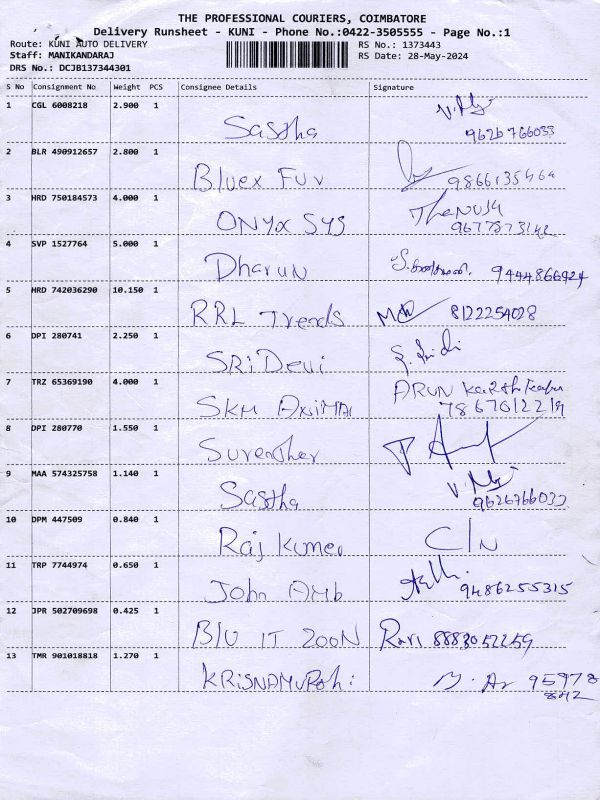 THE PROFESSIONAL COURIERS, COIMBATORE
Delivery Runsheet - KUNI - Phone No.:0422-3505555 - Page No.:1
Route: KUNI AUTO DELIVERY RS No.: 1373443
Staff: MANIKANDARAJ RS Date: 28-May-2024
DRS No.: DCJB137344301
S No Consignment No Weight PCS Consignee Details Signature
1 CGL 6008218 2.900 1
Sastha 9626766033
2 BLR 490912657 2.800 1
Bluex Fuv
3 HRD 750184573 4.000 1 Thenush
ONYX SYS
4 SVP 1527764 5.000 1
Dharun 9444866924
5 HRD 742036290 10.150 1
RRL Trends 8122254028
6 DPI 280741 2.250 1
SRi Devi
7 TRZ 65369190 4.000 1 ARUN
SKM 7867012219
8 DPI 280770 1.550 1
Surendher
9 MAA 574325758 1.140 1
Sastha 9626766033
10 DPM 447509 0.840 1
Raj Kumer C/N
11 TRP 7744974 0.650 1
John Amb 9486255315
12 JPR 502709698 0.425 1
IT ZOON Ravi 8883052259
13 TMR 901018818 1.270 1
95978